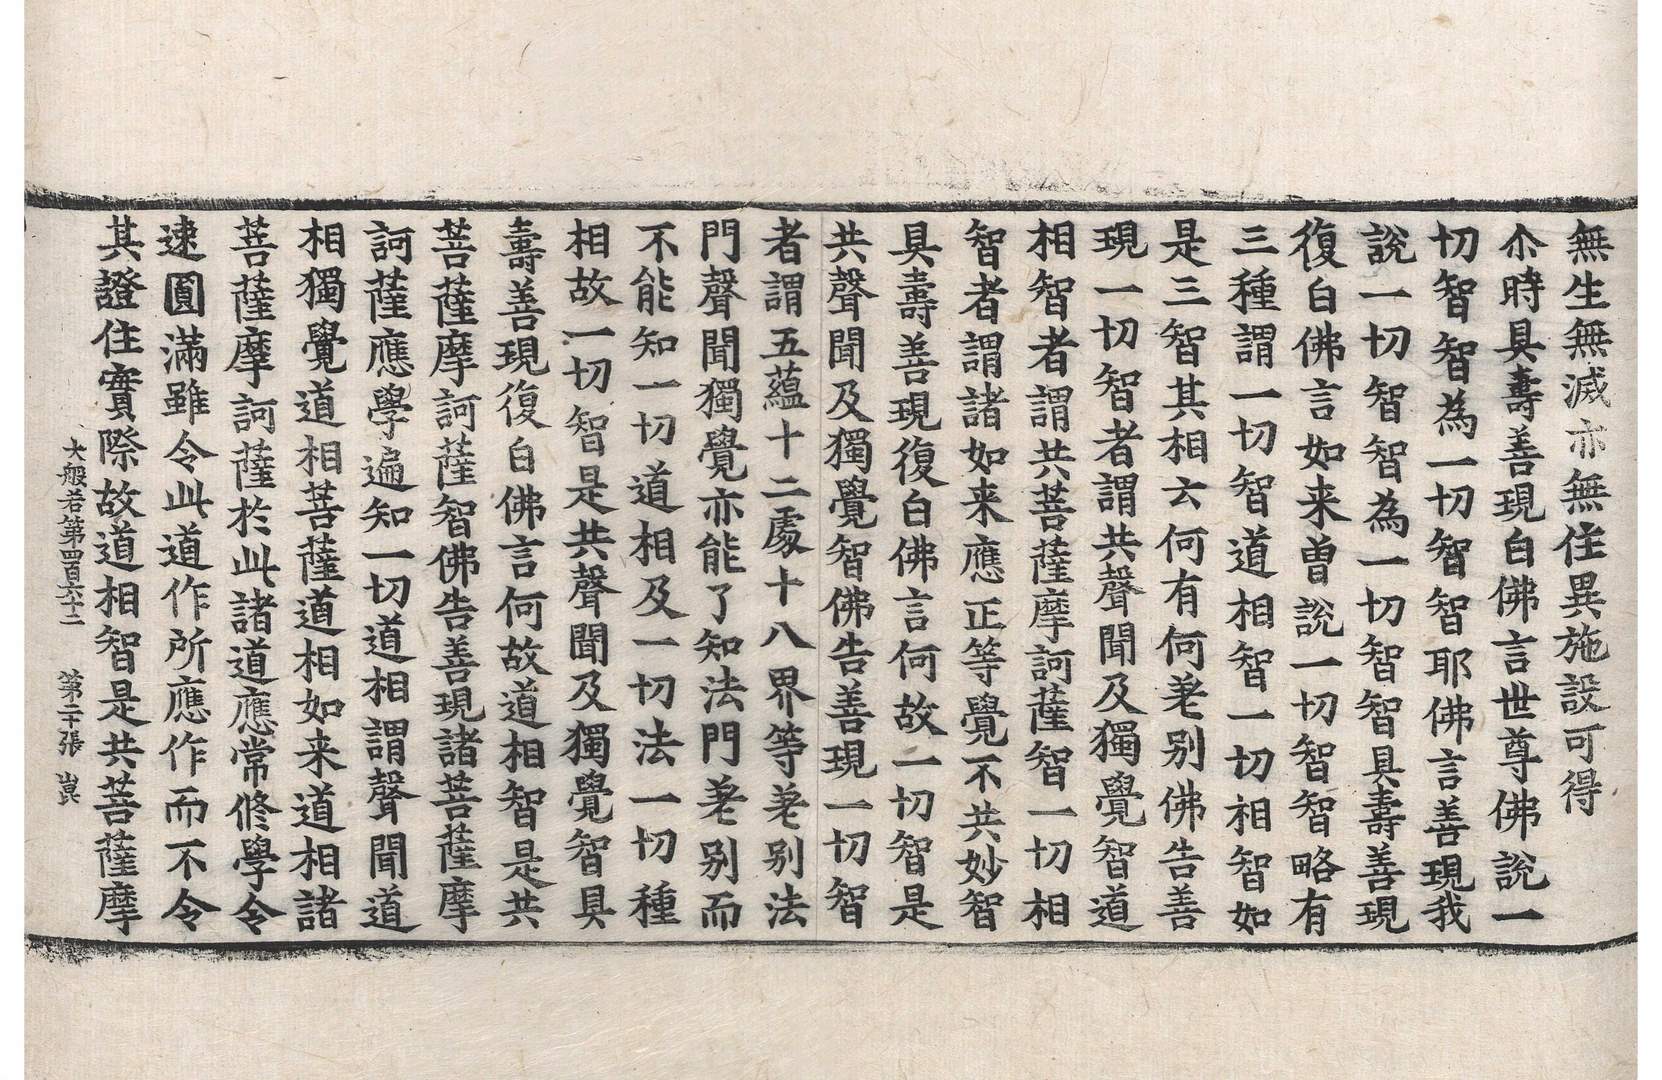 無生無滅亦無住異施設可得
尒時具壽善現白佛言世尊佛說一
切智智為一切智智耶佛言善現我
說一切智智為一切智智具壽善現
復白佛言如来曾說一切智智略有
三種謂一切智道相智一切相智如
是三智其相云何有何差别佛告善
現一切智者謂共聲聞及獨覺智道
相智者謂共菩薩摩訶薩智一切相
智者謂諸如来應正等覺不共妙智
具壽善現復白佛言何故一切智是
共聲聞及獨覺智佛告善現一切智
者謂五蘊十二處十八界等差别法
門聲聞獨覺亦能了知法門差别而
不能知一切道相及一切法一切種
相故一切智是共聲聞及獨覺智具
壽善現復白佛言何故道相智是共
菩薩摩訶薩智佛告善現諸菩薩摩
訶薩應學遍知一切道相謂聲聞道
相獨覺道相菩薩道相如来道相諸
菩薩摩訶薩於此諸道應常修學令
速圓滿雖令此道作所應作而不令
其證住實際故道相智是共菩薩摩
大般若第四百六十二 第二十張 崑